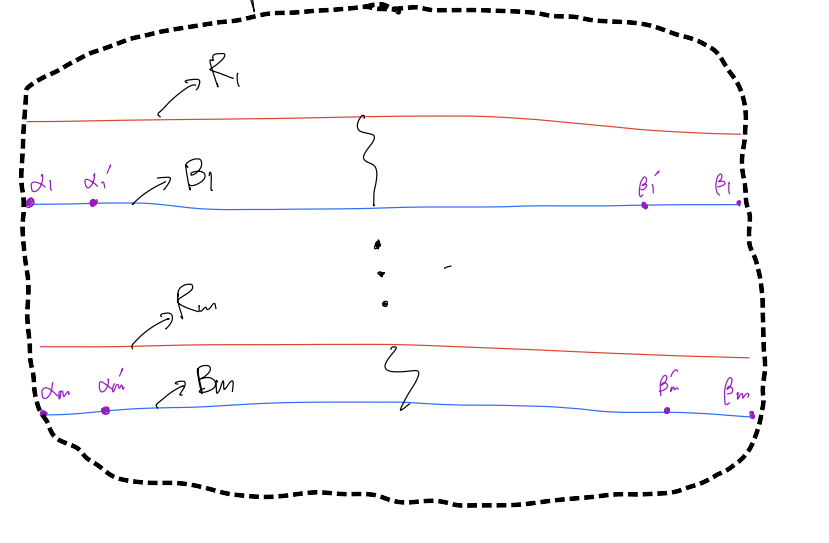 R₁
α₁ α₁′ B₁ β₁′ β₁
Rₘ
αₘ αₘ′ Bₘ βₘ′ βₘ